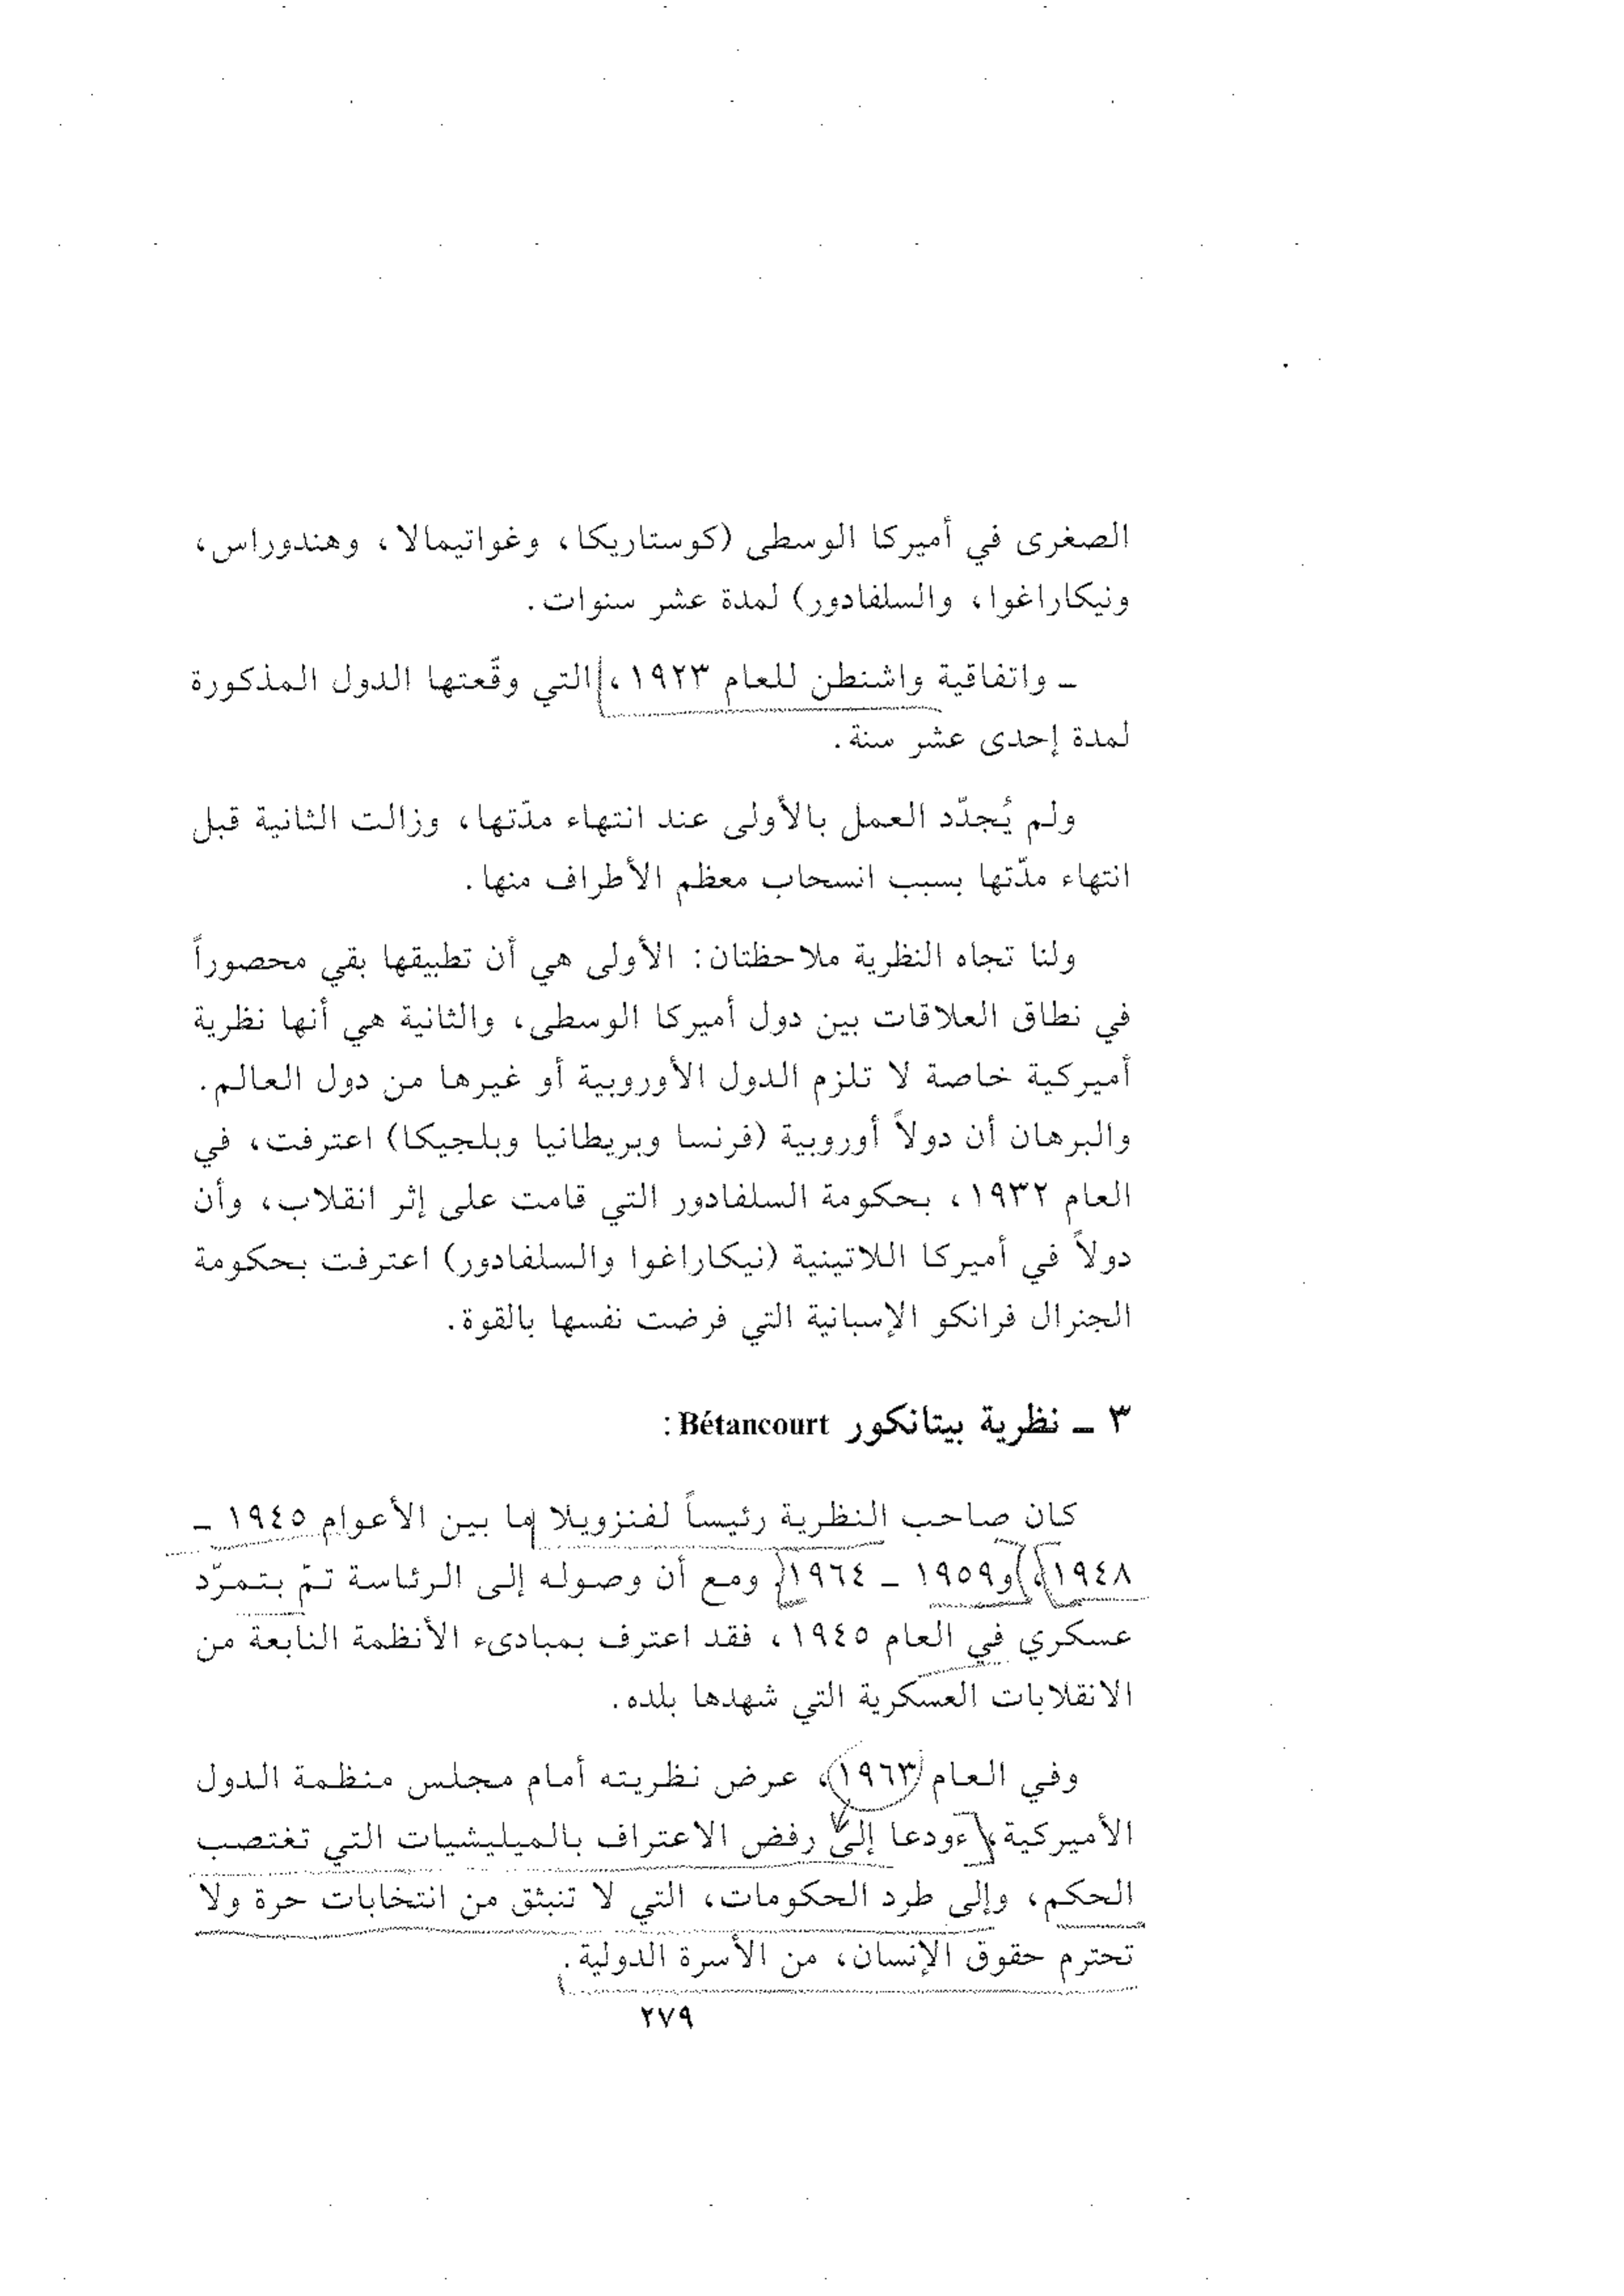 الصغرى في أميركا الوسطى (كوستاريكا، وغواتيمالا، وهندوراس،
ونيكاراغوا، والسلفادور) لمدة عشر سنوات.
ـ واتفاقية واشنطن للعام ١٩٢٣، التي وقّعتها الدول المذكورة
لمدة إحدى عشر سنة.
ولم يُجدّد العمل بالأولى عند انتهاء مدّتها، وزالت الثانية قبل
انتهاء مدّتها بسبب انسحاب معظم الأطراف منها.
ولنا تجاه النظرية ملاحظتان: الأولى هي أن تطبيقها بقي محصوراً
في نطاق العلاقات بين دول أميركا الوسطى، والثانية هي أنها نظرية
أميركية خاصة لا تلزم الدول الأوروبية أو غيرها من دول العالم.
والبرهان أن دولاً أوروبية (فرنسا وبريطانيا وبلجيكا) اعترفت، في
العام ١٩٣٢، بحكومة السلفادور التي قامت على إثر انقلاب، وأن
دولاً في أميركا اللاتينية (نيكاراغوا والسلفادور) اعترفت بحكومة
الجنرال فرانكو الإسبانية التي فرضت نفسها بالقوة.
٣ ـ نظرية بيتانكور Bétancourt:
كان صاحب النظرية رئيساً لفنزويلا ما بين الأعوام ١٩٤٥ ـ
١٩٤٨، و١٩٥٩ ـ ١٩٦٤، ومع أن وصوله إلى الرئاسة تمّ بتمرّد
عسكري في العام ١٩٤٥، فقد اعترف بمبادىء الأنظمة النابعة من
الانقلابات العسكرية التي شهدها بلده.
وفي العام ١٩٦٣، عرض نظريته أمام مجلس منظمة الدول
الأميركية، ودعا إلى رفض الاعتراف بالميليشيات التي تغتصب
الحكم، وإلى طرد الحكومات، التي لا تنبثق من انتخابات حرة ولا
تحترم حقوق الإنسان، من الأسرة الدولية.
٢٧٩